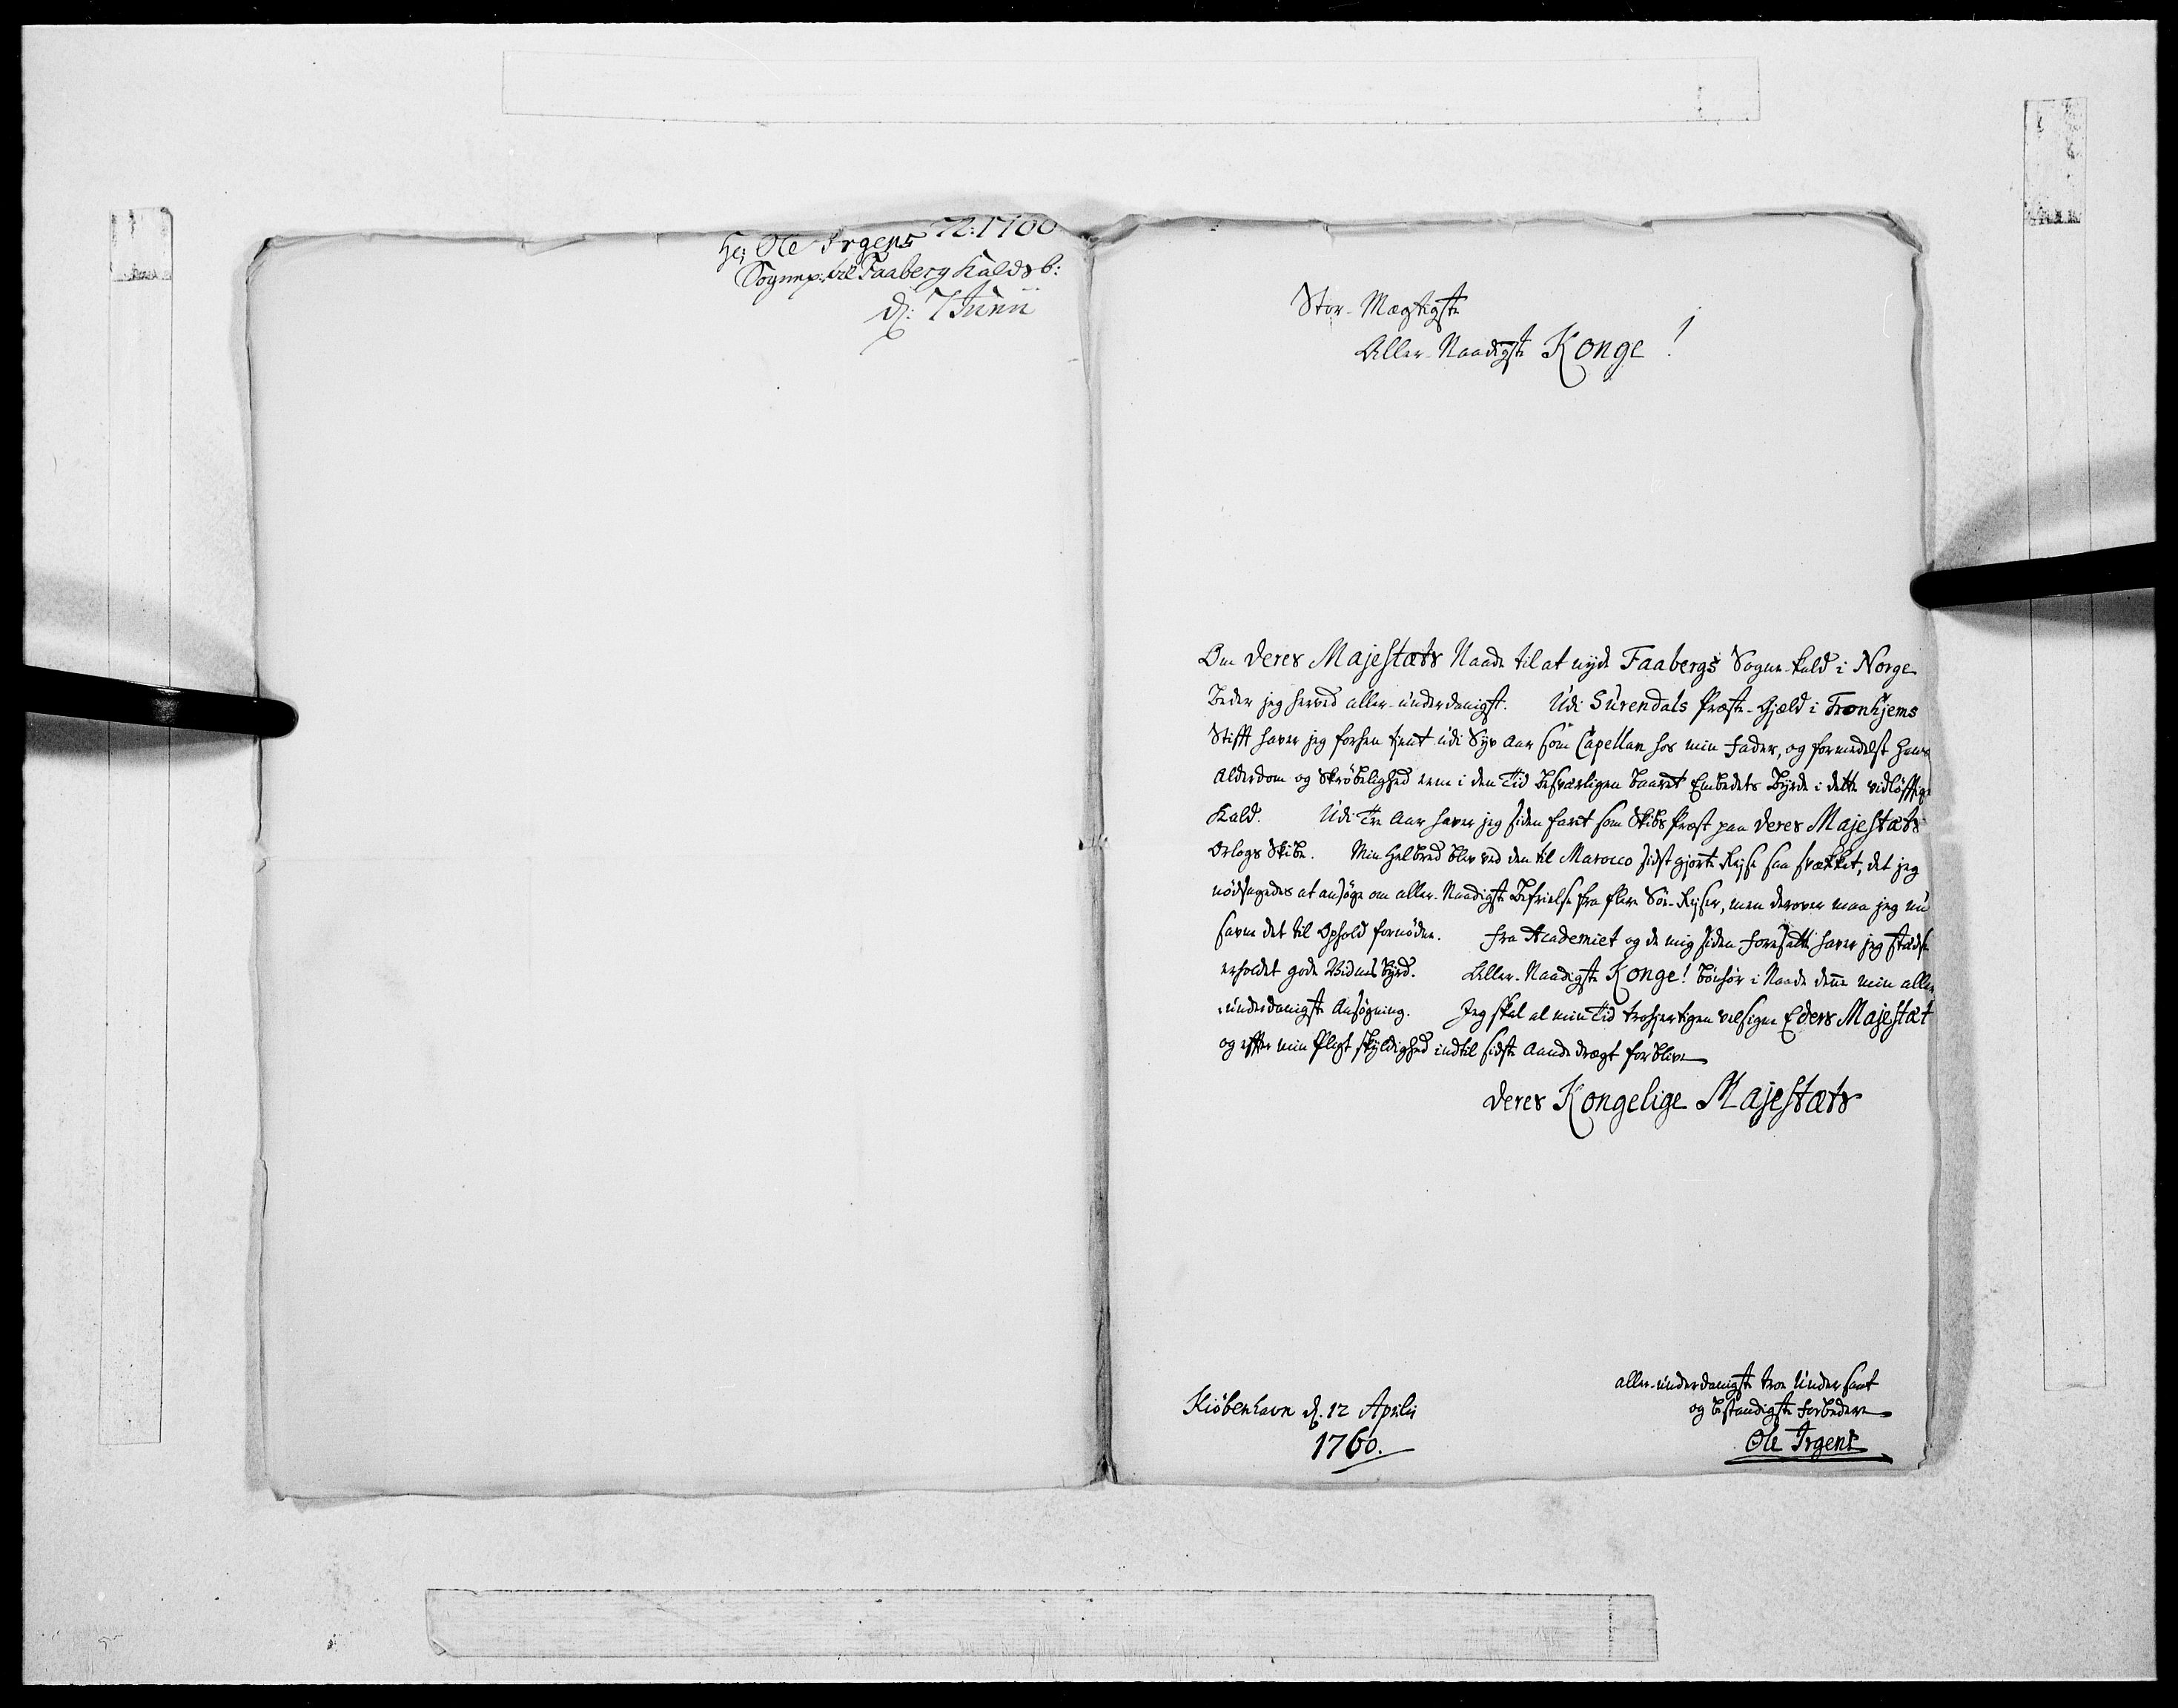 72:1760
Hr: Ole Irgens
Sognep: til Faaberg Kalds b:
d: 7 Junii
Stor-Mægtigste
Aller-Naadigste Konge!
Om Deres Majestæts Naade til at nyde Faabergs Sogne-kald i Norge
Beder jeg herved aller-underdanigst. Udi Surendals Præste-Gjæld i Tronhjems
Stifft haver jeg forhen tient udi Syv Aar som Capellan hos min Fader, og formedelst Hans
Alderdom og Skrøbelighed eene i den Tid besværligen baaret Embedets Byrde i dette vidløfftige
Kald. Udi Tre Aar haver jeg siden faret som Skibs Præst paa Deres Majestæts
Orlogs Skibe. Min Helbred blev ved den til Marocco sidst gjorte Rejse saa svækket, det jeg
nødsagedes at ansøge om aller-Naadigste Befrielse fra flere Søe-Rejser, men derover maa jeg nu
savne det til Ophold fornødne. Fra Academiet og de mig siden foresatte haver jeg stædse
erholdet gode Vidnesbyrd. Aller-Naadigste Konge! bønhør i Naade denne min aller
underdanigste Ansøgning. Jeg skal al min Tid trohjertigen velsigne Eders Majestæt
og efter min Pligt skyldighed indtil sidste Aande drægt forblive
Deres Kongelige Majestæts
Kiøbenhavn d. 12 Aprilii
1760.
aller-underdanigste troe Undersaat
og bestandigste forbedere
Ole Irgens